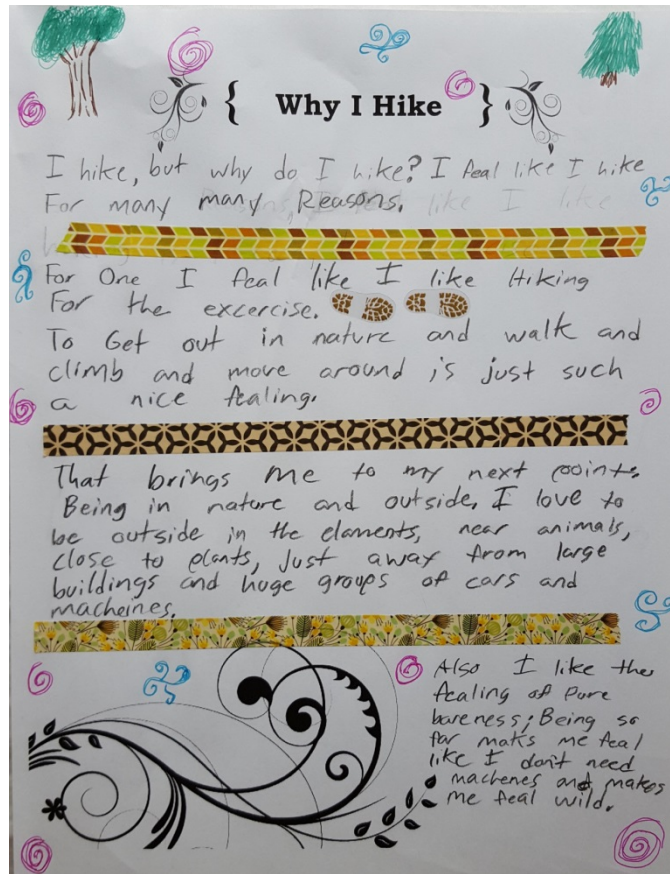 { Why I Hike }
I hike, but why do I hike? I feal like I hike
For many many Reasons.
For One I feal like I like Hiking
For the excercise.
To Get out in nature and walk and
climb and move around is just such
a nice fealing.
That brings me to my next point.
Being in nature and outside. I love to
be outside in the elaments, near animals,
close to plants, just away from large
buildings and huge groups of cars and
macheines.
Also I like the
fealing of Pure
bareness; Being so
far maks me feal
like I don't need
machenes and makes
me feal wild.